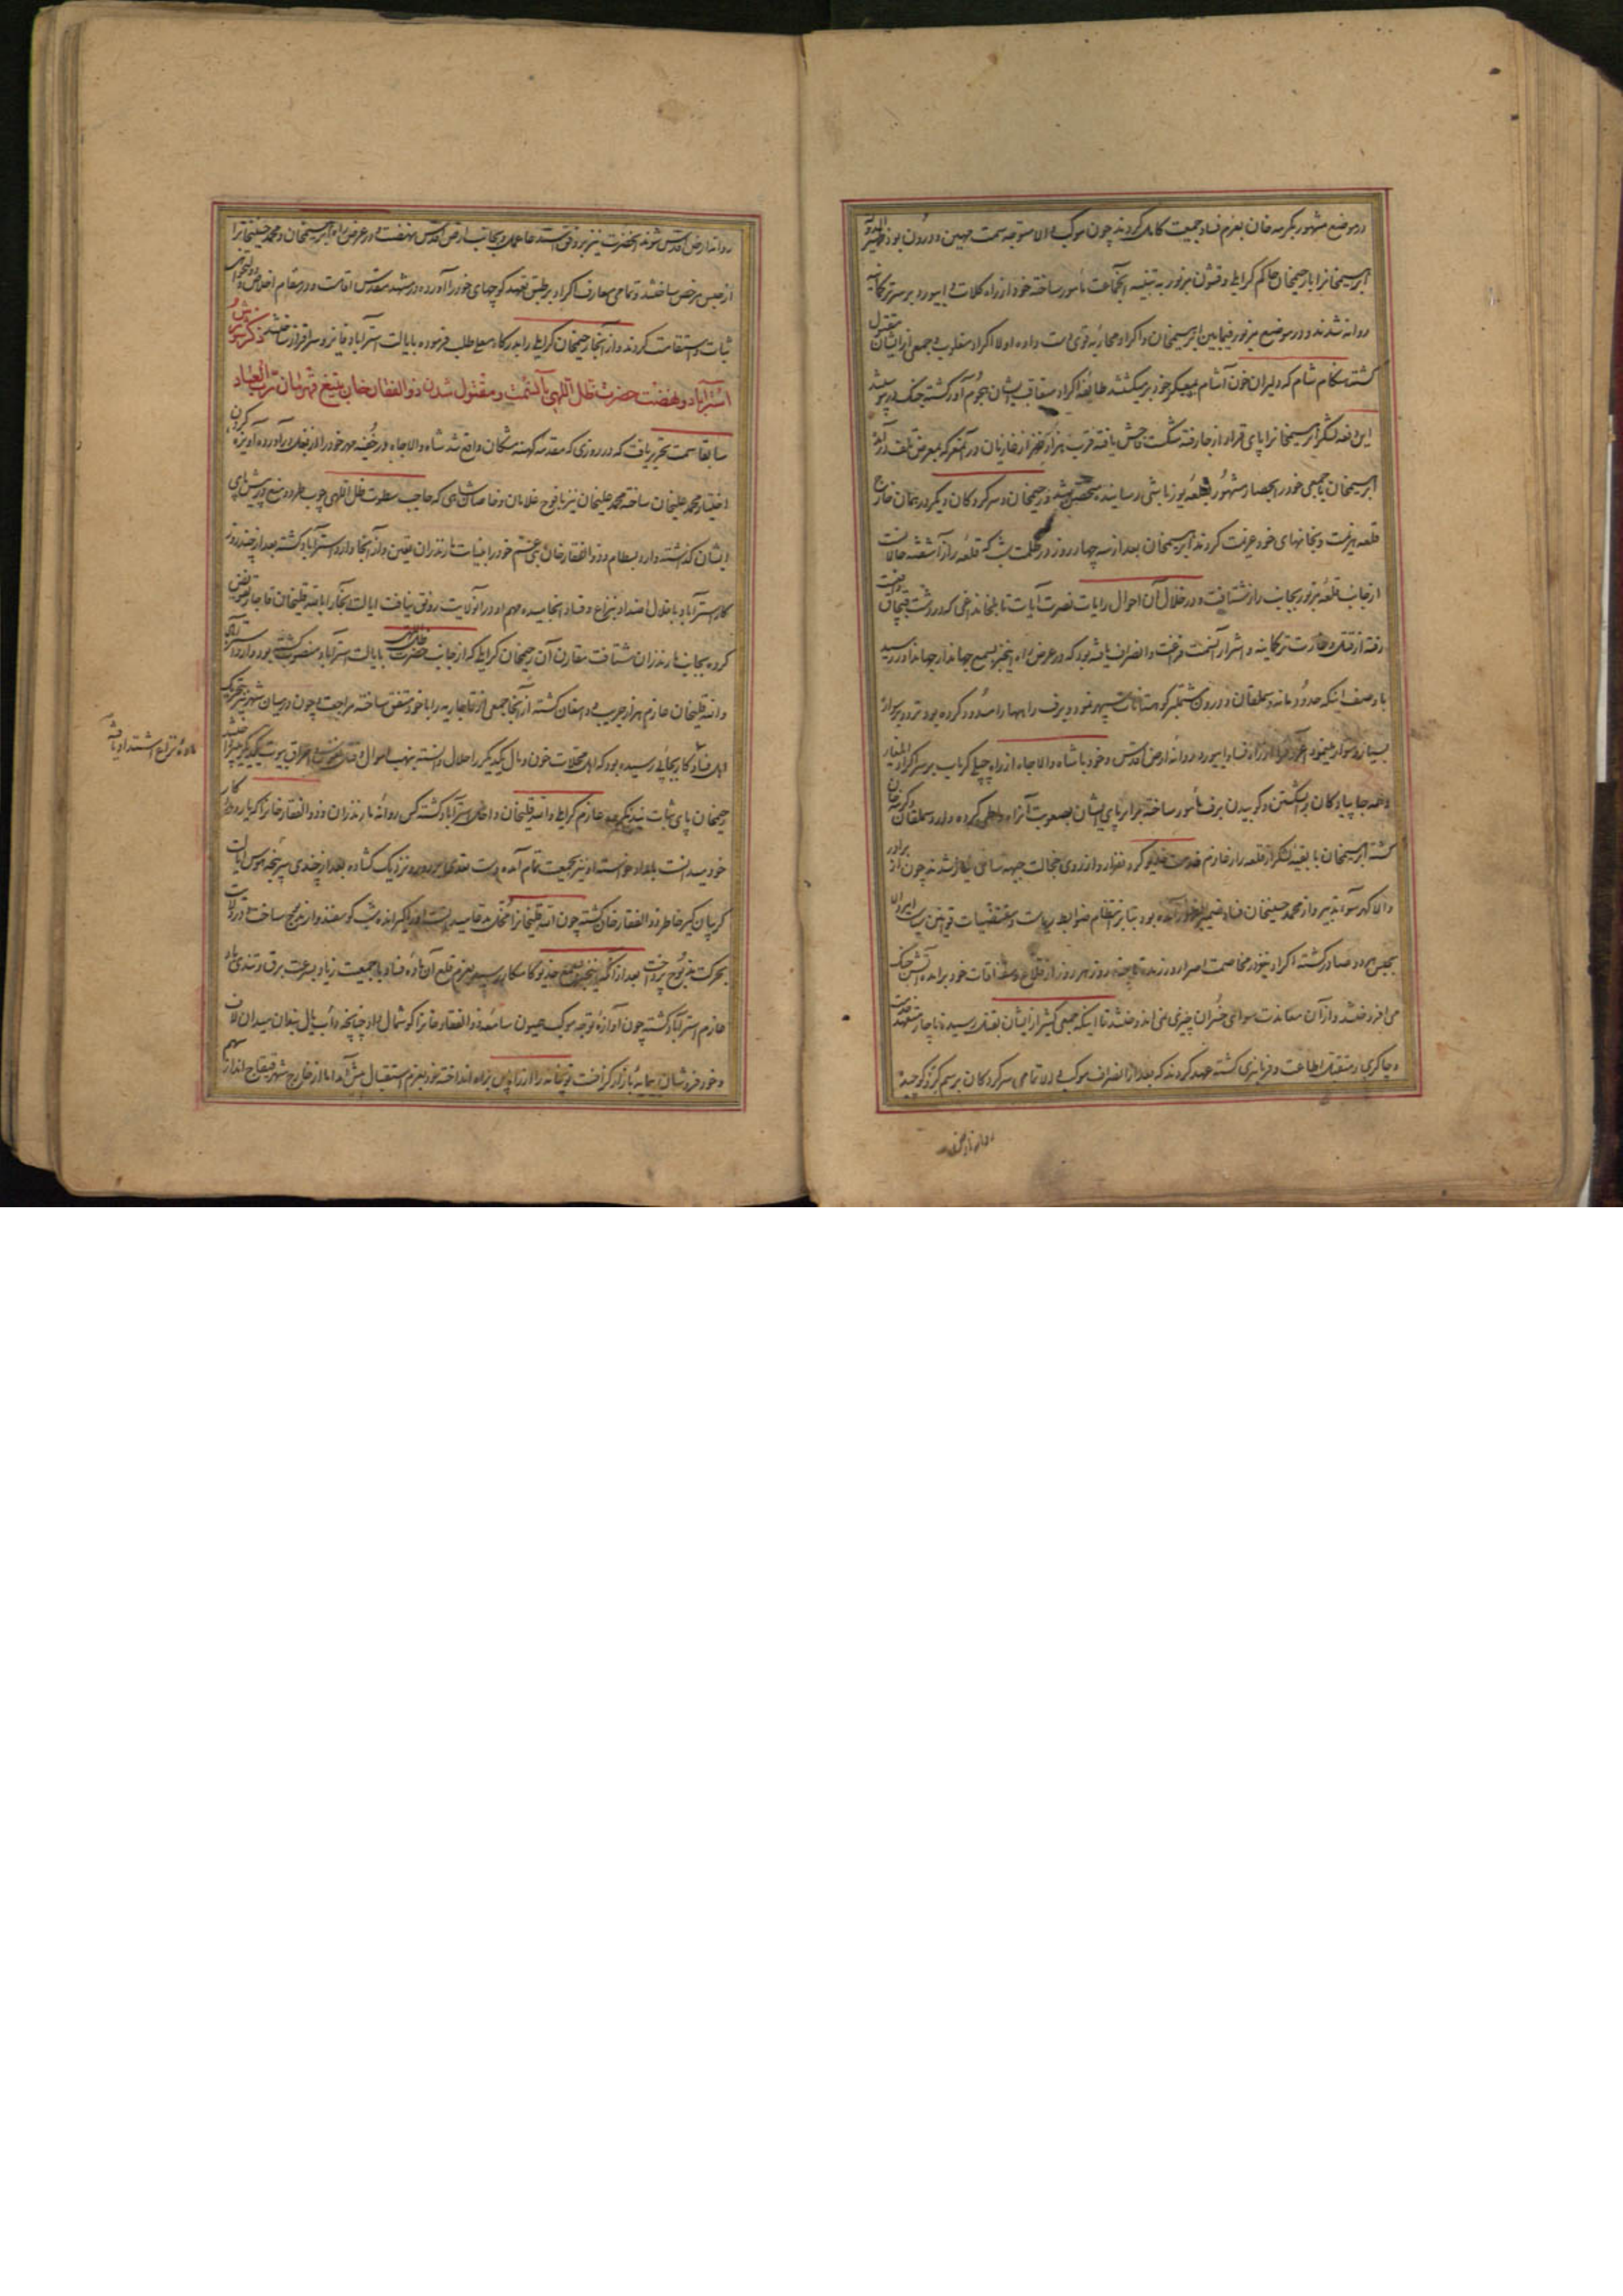 در موضع مشهور بکرمه خان بعزم فساد جمعیت کامل کردند چون موکب والا متوجه سمت مهین و درون بود ظهیر الدوله
ابرهیمخانرا با رحیمخان حاکم کرایلی و قشون مزبور به تنبیه آنجماعت مأمور ساخته خود از راه کلات و ابیورد بر سر ترکمانیه
روانه شدند و در موضع مزبور فیمابین ابرهیمخان و اکراد محاربه قوی دست داده اولا اکراد مغلوب و جمعی از ایشان مقتول
گشته هنگام شام که دلیران خون آشام بمعسکر خود برمیگشتند طایفه اکراد متعاقب ایشان هجوم آور گشته جنگ در پیوستند
این دفعه لشکر ابرهیمخانرا پای قرار از جا رفته شکست فاحش یافته قریب هزار نفر از غازیان در آن معرکه بمعرض تلف درآمد
ابرهیمخان با جمعی خود را بحصار مشهور بقلعه یوزباشی رسانیده متحصن شد و رحیمخان و سرکردگان دیگر در همان خارج
قلعه هزیمت و بخانهای خود عزیمت کردند ابرهیمخان بعد از سه چهار روز در ظلمت شب که قلعه را آرا شفته حال است
از جانب قلعه مزبور بجانب راز شتافت و در خلال آن احوال رایات نصرت آیات تا بلخانداغی که در دشت قبچاق واقعست
رفته از قتل و غارت ترکمانیه و اشرار آنسمت فراغت و انصراف یافته بود که در عرض راه اینخبر بسمع جهاندار جهاندار رسید
با وصف اینکه حدود مانه و سملقان و درون مشتمل بر کوهستانات سپهر نمود و برف راهها را مسدود کرده بود تردد بر سواره
بسیار دشوار مینمود اغروق را از راه نسا و ابیورد روانه ارض اقدس و خود با شاه والاجاه از راه چپلی کرماب بر سر اکراد ایلغار
و همه جا پیادگان را بشکستن و کوبیدن برف مأمور ساخته برابر پای ایشان بصعوبت آنراه را طی کرده وارد سملقان و کرمه خان
گشته ابرهیمخان با بقیه لشکر از قلعه راز عازم خدمت خدیو گردون اقتدار و از روی خجالت جبهه سای نیاز شدند چون از برادر
والا گهر سوء تدبیر و از محمد حسینخان فساد ضمیر بظهور آمده بود بنا بر انتظام ضوابط ریاست و مقتضیات قوانین سیاست ایشان
بحبس هر دو صادر گشته اکراد نیز در مخاصمت اصرار ورزیده تا چند روز هر روز از قلاع و سقناقات خود برآمده آتش جنگ
می افروختند و از آن معاندت سوای خسران چیزی نمی اندوختند تا اینکه جمعی کثیر از ایشان بقتل رسید ناچار متعهد خدمت
و چاکری و متقبل اطاعت و فرمانبری گشته عهد کردند که بعد از انصراف موکب والا تمامی سرکردگان برسم کرو کوچیده
روانه ارض اقدس
روانه ارض اقدس شوند آنحضرت نیز بر وفق استدعا عمل و بجانب ارض اقدس نهضت و در عرض راه ابرهیمخان و محمد حسینخانرا
از حبس مرخص ساختند و تمامی معارف اکراد بر طبق تعهد کوچهای خود را آورده در مشهد مقدس اقامت و در مقام اخلاص و دولتخواهی
ثبات و استقامت کردند و از آنجا رحیمخان کرایلی را بدرکار معلی طلب فرموده بایالت استرآباد فایز و سرافراز ساختند ذکر شورش
استرآباد و نهضت حضرت ظل اللهی بآنسمت و مقتول شدن ذوالفقار خان بتیغ قهرمان رب العباد
سابقا سمت تحریر یافت که در روزی که مقدمه کهنه مشکان واقع شد شاه والاجاه در خفیه مهر خود را از بغل درآورده آویزه گردن
اختیار محمد علیخان ساخته محمد علیخان نیز با فوج غلامان و خاصان شاهی که حاجب سطوت ظل اللهی چوب طرد و منع در پیش پای
ایشان گذاشته وارد بسطام و ذوالفقار خان عی عشم خود را بنیابت مازندران تعیین و از آنجا وارد استرآباد گشته بعد از چند روز
کار استرآباد باختلال اضداد بنزاع و فساد انجامیده مهم او در آنولایت رونق نیافت ایالت آنجا را بالله قلیخان قاجار تفویض
کرده بجانب مازندران شتافت مقارن آن رحیمخان کرایلی که از جانب حضرت ظل اللهی بایالت استرآباد منصوب گشته بود وارد استرآباد
و الله قلیخان عازم هزار جریب و دامغان گشته از آنجا جمعی از قاجاریه را با خود متفق ساخته مراجعت و چون در میان شهر نیز بتحریک
اهل فساد کار بجائی رسیده بود که اهل محلات خون و مال یکدیگر را حلال دانسته بنهب اموال و قتل نفوس و احراق بیوت یکدیگر میپرداختند
ماده نزاع اشتداد یافته
رحیمخان پای ثبات نیفشرده عازم کرایلی و الله قلیخان داخل استرآباد گشته کس روانه مازندران و ذوالفقار خانرا که یار و طرف کار
خود میدانست بامداد خواسته او نیز بجمعیت تمام آمده دست تعدی بر دور و نزدیک گشاده بعد از چندی سرپنجه هوس ایالت
گریبان گیر خاطر ذوالفقار خان گشته چون الله قلیخانرا مخل مدعا میدانست او را گیرانده شب گوسفندوار ذبح ساخت و در ولایت
بحرکت مذبوح پرداخت بعد از آنکه اینخبر بسمع خدیو کامکار رسید بعزم قلع آن ماده فساد با جمعیت زیاد بسرعت برق و تندی باد
عازم استرآباد گشته چون آوازه توجه موکب همیون سامعه ذوالفقار خانرا گوشمال داد چنانچه دأب یال بندان میدان لاف
و خود فروشان بیمایه بازار گزافست توپخانه را از راه پس براه انداخته خود بعزم استقبال پیش آمد اما از خارج شهر قیقاج انداز سهم